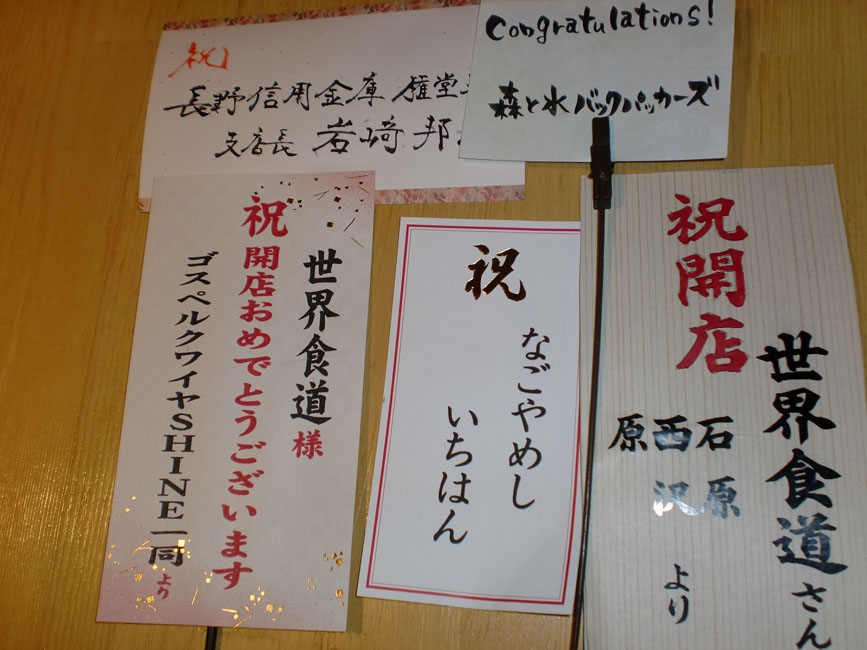 祝
長野信用金庫 権堂
支店長 岩崎 邦
Congratulations!
森と水バックパッカーズ
世界食道様
祝開店おめでとうございます
ゴスペルクワイヤSHINE一同より
祝
なごやめし
いちはん
祝開店
世界食道さん
石原
西沢
原
より